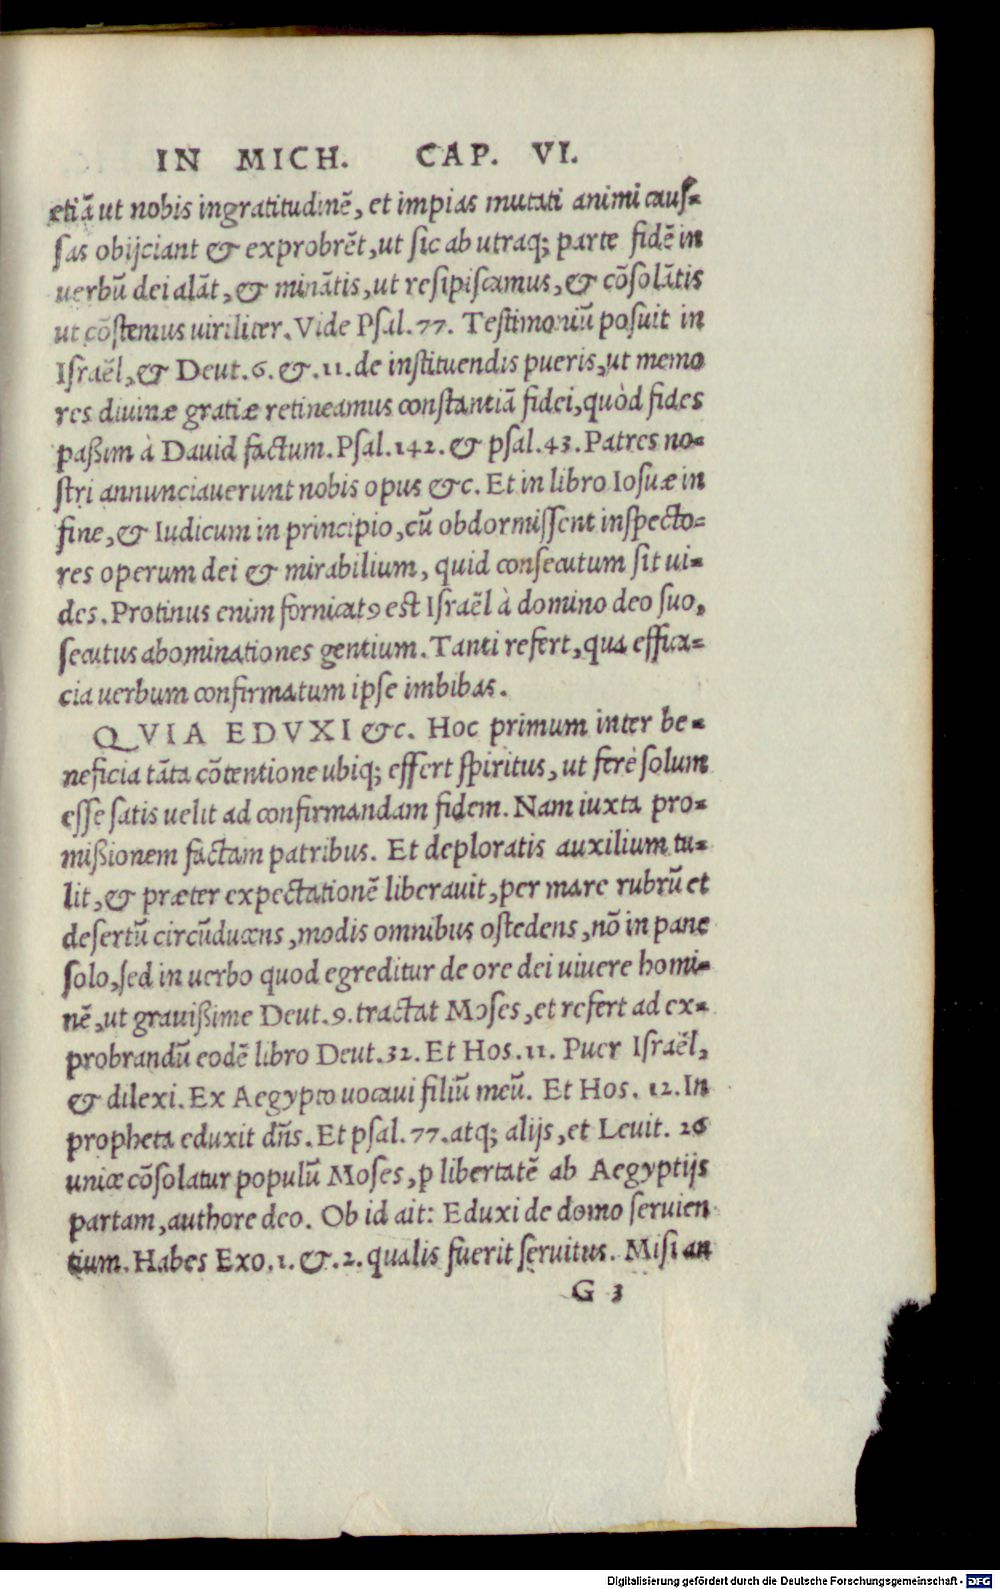 IN MICH. CAP. VI.
etiã ut nobis ingratitudinẽ, et impias mutati animi cauſ=
ſas obijciant & exprobrẽt, ut ſic ab utraq; parte fidẽ in
uerbũ dei alãt, & minãtis, ut reſipiſcamus, & cõſolãtis
ut cõſtemus uiriliter. Vide Pſal. 77. Teſtimoniũ poſuit in
Iſraẽl, & Deut. 6. &. 11. de inſtituendis pueris, ut memo
res diuinæ gratiæ retineamus conſtantiã fidei, quòd fides
paßim à Dauid factum. Pſal. 142. & pſal. 43. Patres no=
ſtri annunciauerunt nobis opus &c. Et in libro Ioſuæ in
fine, & Iudicum in principio, cũ obdormiſſent inſpecto=
res operum dei & mirabilium, quid conſecutum ſit ui=
des. Protinus enim fornicatꝰ eſt Iſraẽl à domino deo ſuo,
ſecutus abominationes gentium. Tanti refert, qua effica=
cia uerbum confirmatum ipſe imbibas.
QVIA EDVXI &c. Hoc primum inter be=
neficia tãta cõtentione ubiq; effert ſpiritus, ut ferè ſolum
eſſe ſatis uelit ad confirmandam fidem. Nam iuxta pro=
mißionem factam patribus. Et deploratis auxilium tu=
lit, & præter expectationẽ liberauit, per mare rubrũ et
deſertũ circũducens, modis omnibus oſtedens, nõ in pane
ſolo, ſed in uerbo quod egreditur de ore dei uiuere homi=
nẽ, ut grauißime Deut. 9. tractat Moſes, et refert ad ex=
probrandũ eodẽ libro Deut. 32. Et Hos. 11. Puer Iſraẽl,
& dilexi. Ex Aegypto uocaui filiũ meũ. Et Hos. 12. In
propheta eduxit dñs. Et pſal. 77. atq; alijs, et Leuit. 26
unice cõſolatur populũ Moſes, ꝑ libertatẽ ab Aegyptijs
partam, authore deo. Ob id ait: Eduxi de domo ſeruien
tium. Habes Exo. 1. &. 2. qualis fuerit ſeruitus. Miſi an
G 3
Digitalisierung gefördert durch die Deutsche Forschungsgemeinschaft - DFG